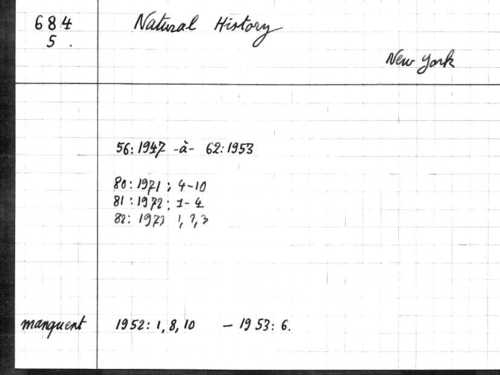 684
5.
Natural History
New York
56:1947 -à- 62:1953
80:1971; 4-10
81:1972; 1-4
82: 1973 1, 2, 3
manquent 1952: 1, 8, 10 — 1953: 6.